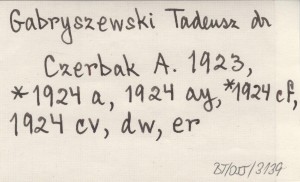 Gabryszewski Tadeusz dr
Czerbak A. 1923,
*1924 a, 1924 ay, *1924 cf,
1924 cv, dw, er